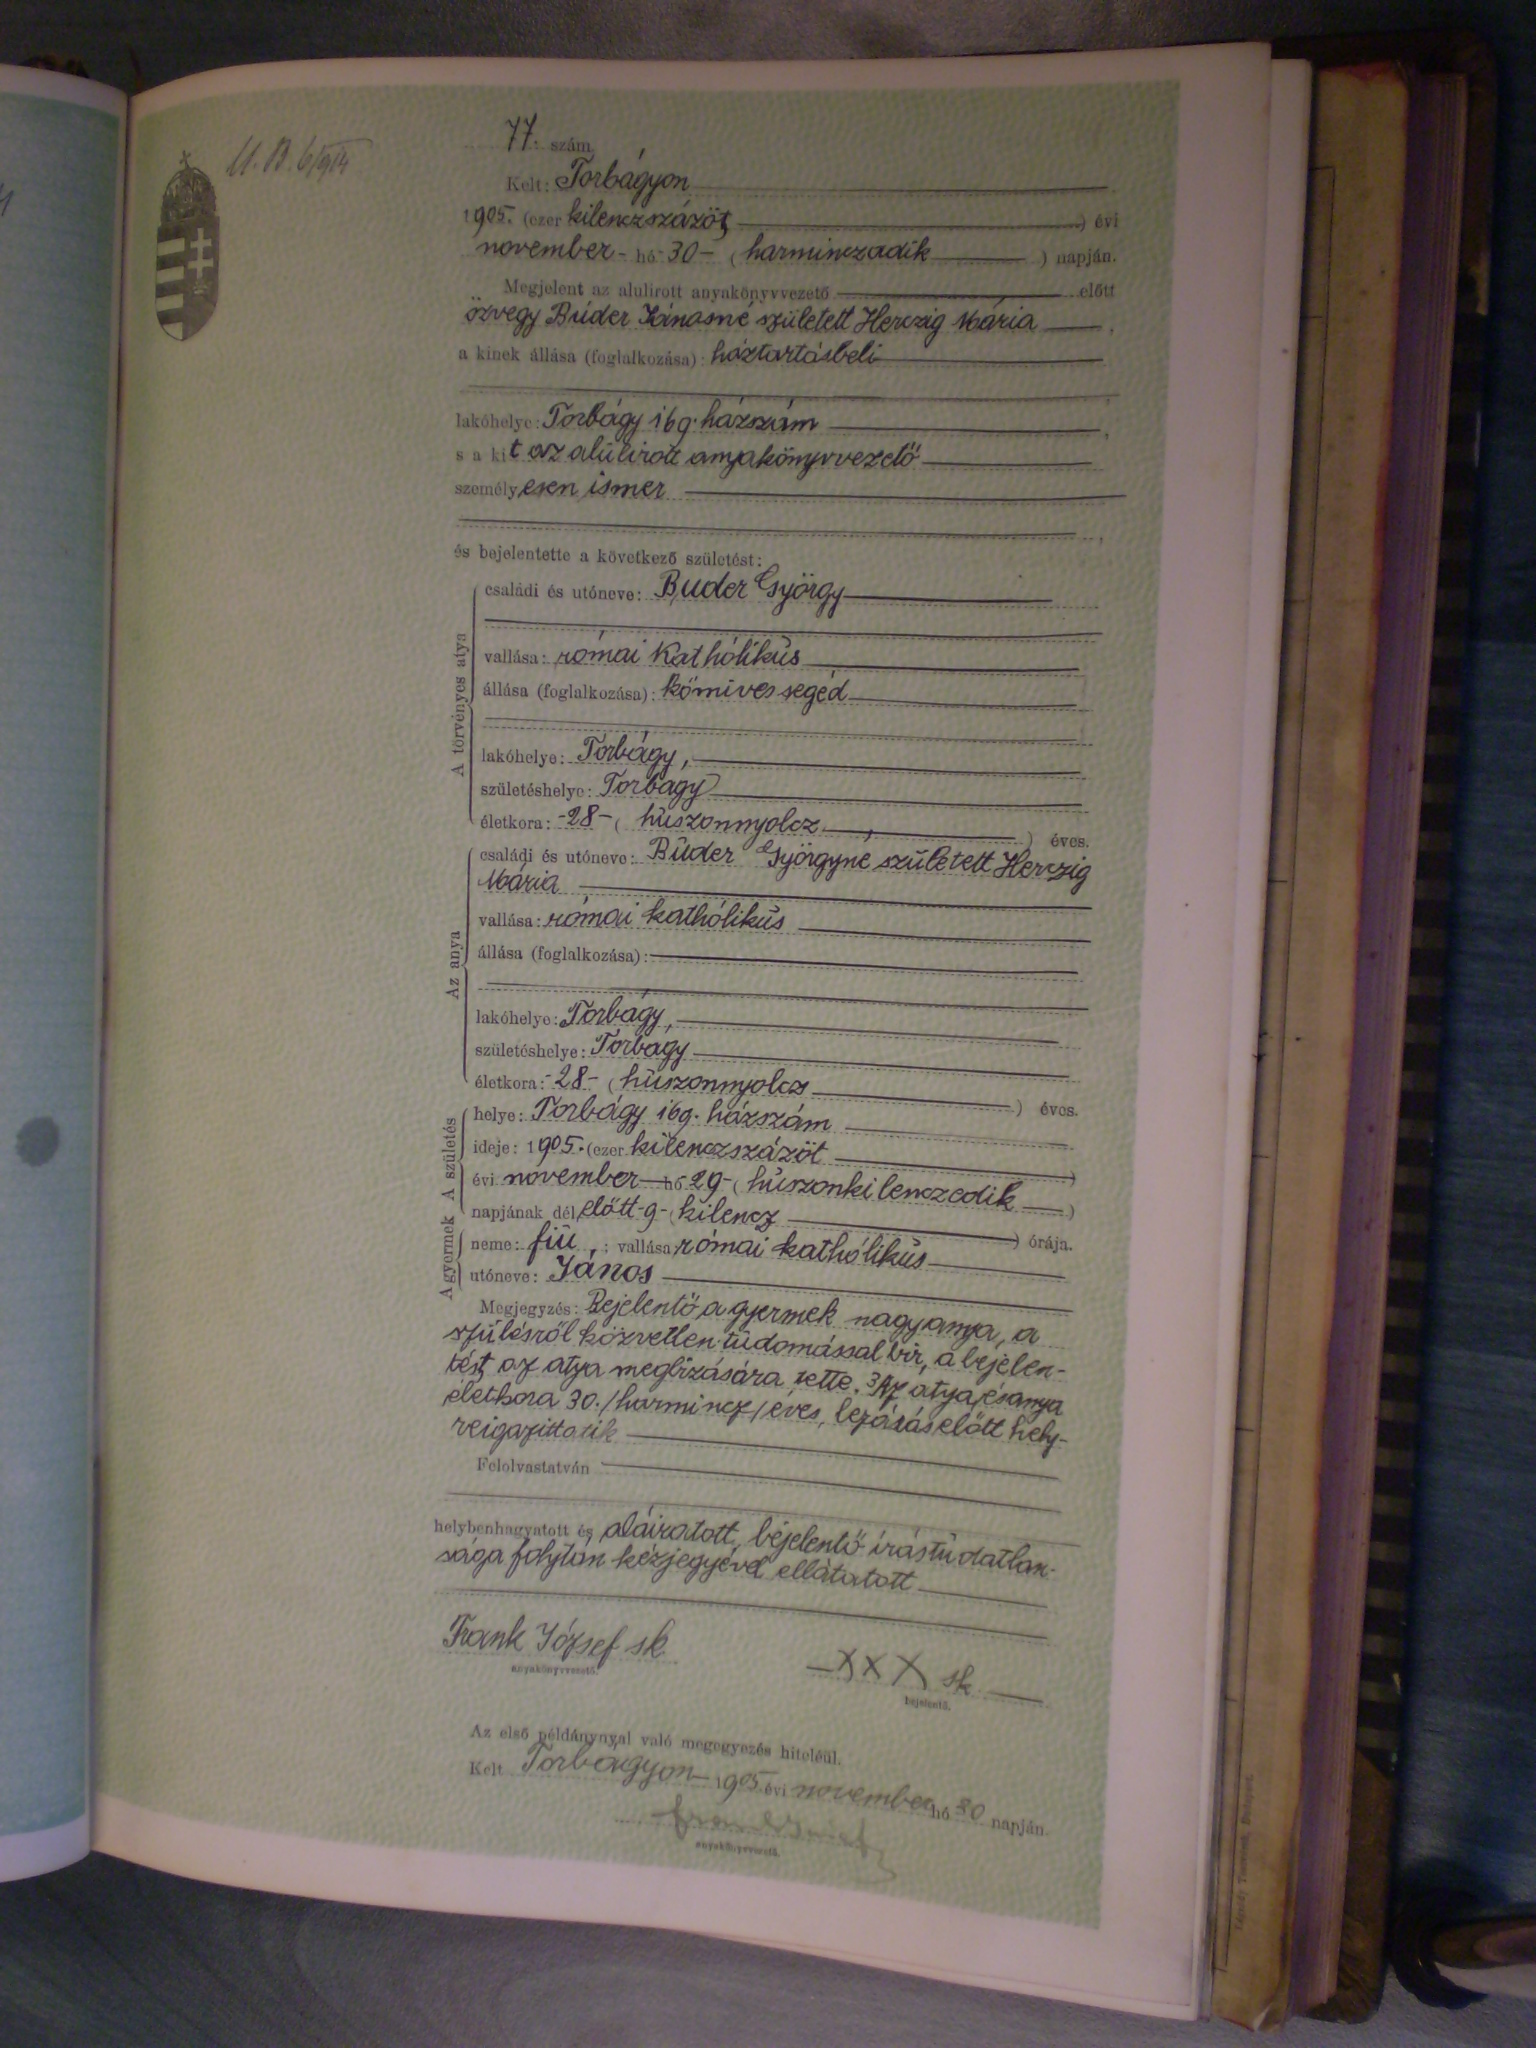 77. szám
Kelt: Torbágyon
1905. (ezer kilenczszázöt) évi
november hó 30 (harminczadik) napján.
Megjelent az alulirott anyakönyvvezető előtt
özvegy Búder Jánosné született Herczig Mária,
a kinek állása (foglalkozása): háztartásbeli
lakóhelye: Torbágy 169. házszám,
s a kit az alúlirott anyakönyvvezető
személyesen ismer
és bejelentette a következő születést:
A törvényes atya
családi és utóneve: Buder György
vallása: római kathólikús
állása (foglalkozása): kömives segéd
lakóhelye: Torbágy,
születéshelye: Torbagy
életkora: -28- (húszonnyolcz) éves.
Az anya
családi és utóneve: Búder Györgyné született Herczig
Mária
vallása: római kathólikús
állása (foglalkozása):
lakóhelye: Torbágy,
születéshelye: Torbágy
életkora: -28- (húszonnyolcz) éves.
A születés
helye: Torbágy 169. házszám
ideje: 1905. (ezer kilenczszázöt)
évi november hó 29- (húszonkilenczedik)
napjának dél előtt -9- (kilencz) órája.
A gyermek
neme: fiú,; vallása: római kathólikús
utóneve: János
Megjegyzés: Bejelentő a gyermek nagyanya, a
szülésről közvetlen túdomással bir, a bejelen-
tést az atya megbizására tette. Az atya és anya
életkora 30. /harmincz/ éves, lezárás előtt hely-
reigazittatik
Felolvastatván
helybenhagyatott és aláiratott, bejelentő irástúdatlan-
sága folytán kézjegyével ellátatott
Frank József sk
anyakönyvvezető.
XXX sk.
bejelentő.
Az első példánynyal való megegyezés hiteléül.
Kelt Torbágyon 1905 évi november hó 30 napján.
anyakönyvvezető.